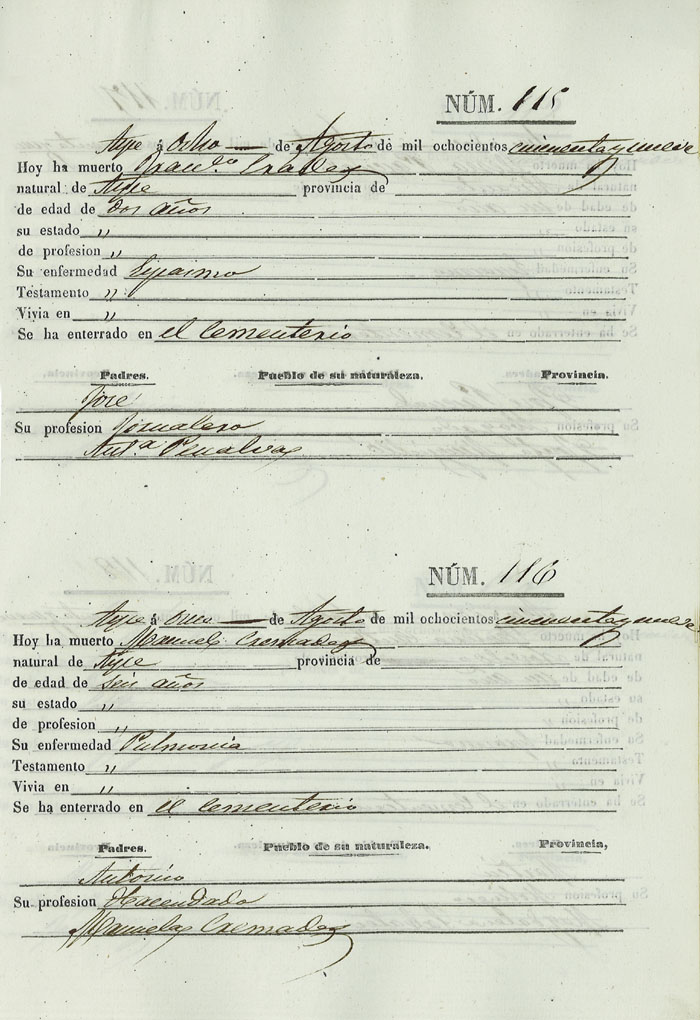 NÚM. 115
Aspe á Ocho de Agosto de mil ochocientos cincuenta y nueve
Hoy ha muerto Fran.co
natural de Aspe provincia de
de edad de dos años
su estado „
de profesion „
Su enfermedad
Testamento „
Vivia en „
Se ha enterrado en el Cementerio
Padres. Pueblo de su naturaleza. Provincia.
José
Su profesion Jornalero
Ant.a Penalva
NÚM. 116
Aspe á de Agosto de mil ochocientos cincuenta y nueve
Hoy ha muerto Manuel Cremades
natural de Aspe provincia de
de edad de seis años
su estado „
de profesion „
Su enfermedad Pulmonia
Testamento „
Vivia en „
Se ha enterrado en el Cementerio
Padres. Pueblo de su naturaleza. Provincia,
Antonio
Su profesion Hacendado
Manuela Cremades